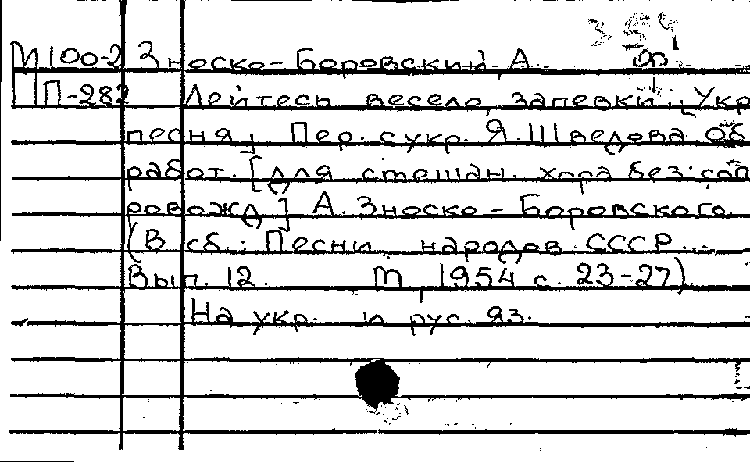 354
М100-2 Зноско-Боровский, А. ор
П-282 Лейтесь весело, запевки. [Укр
песня] Пер. с укр. Я. Шведова Об
работ. [для смешан. хора без соп
ровожд] А. Зноско-Боровского.
(В сб.: Песни народов СССР...
Вып. 12 М, 1954 с. 23-27)
На укр. и рус. яз.